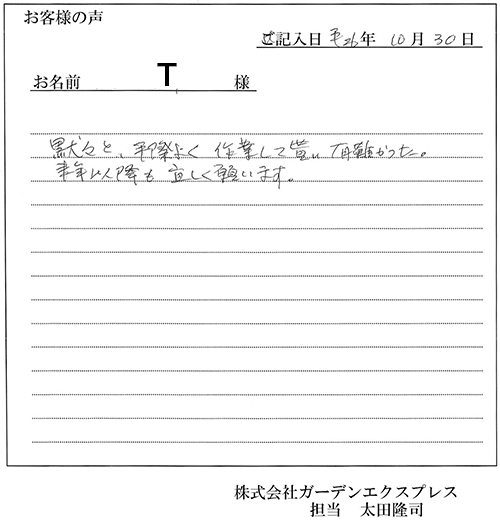 お客様の声
ご記入日 平26年 10月 30日
お名前 T 様
黙々と、手際よく 作業して貰い 有難かった。
来年以降も 宜しく願います。
株式会社ガーデンエクスプレス
担当 太田隆司